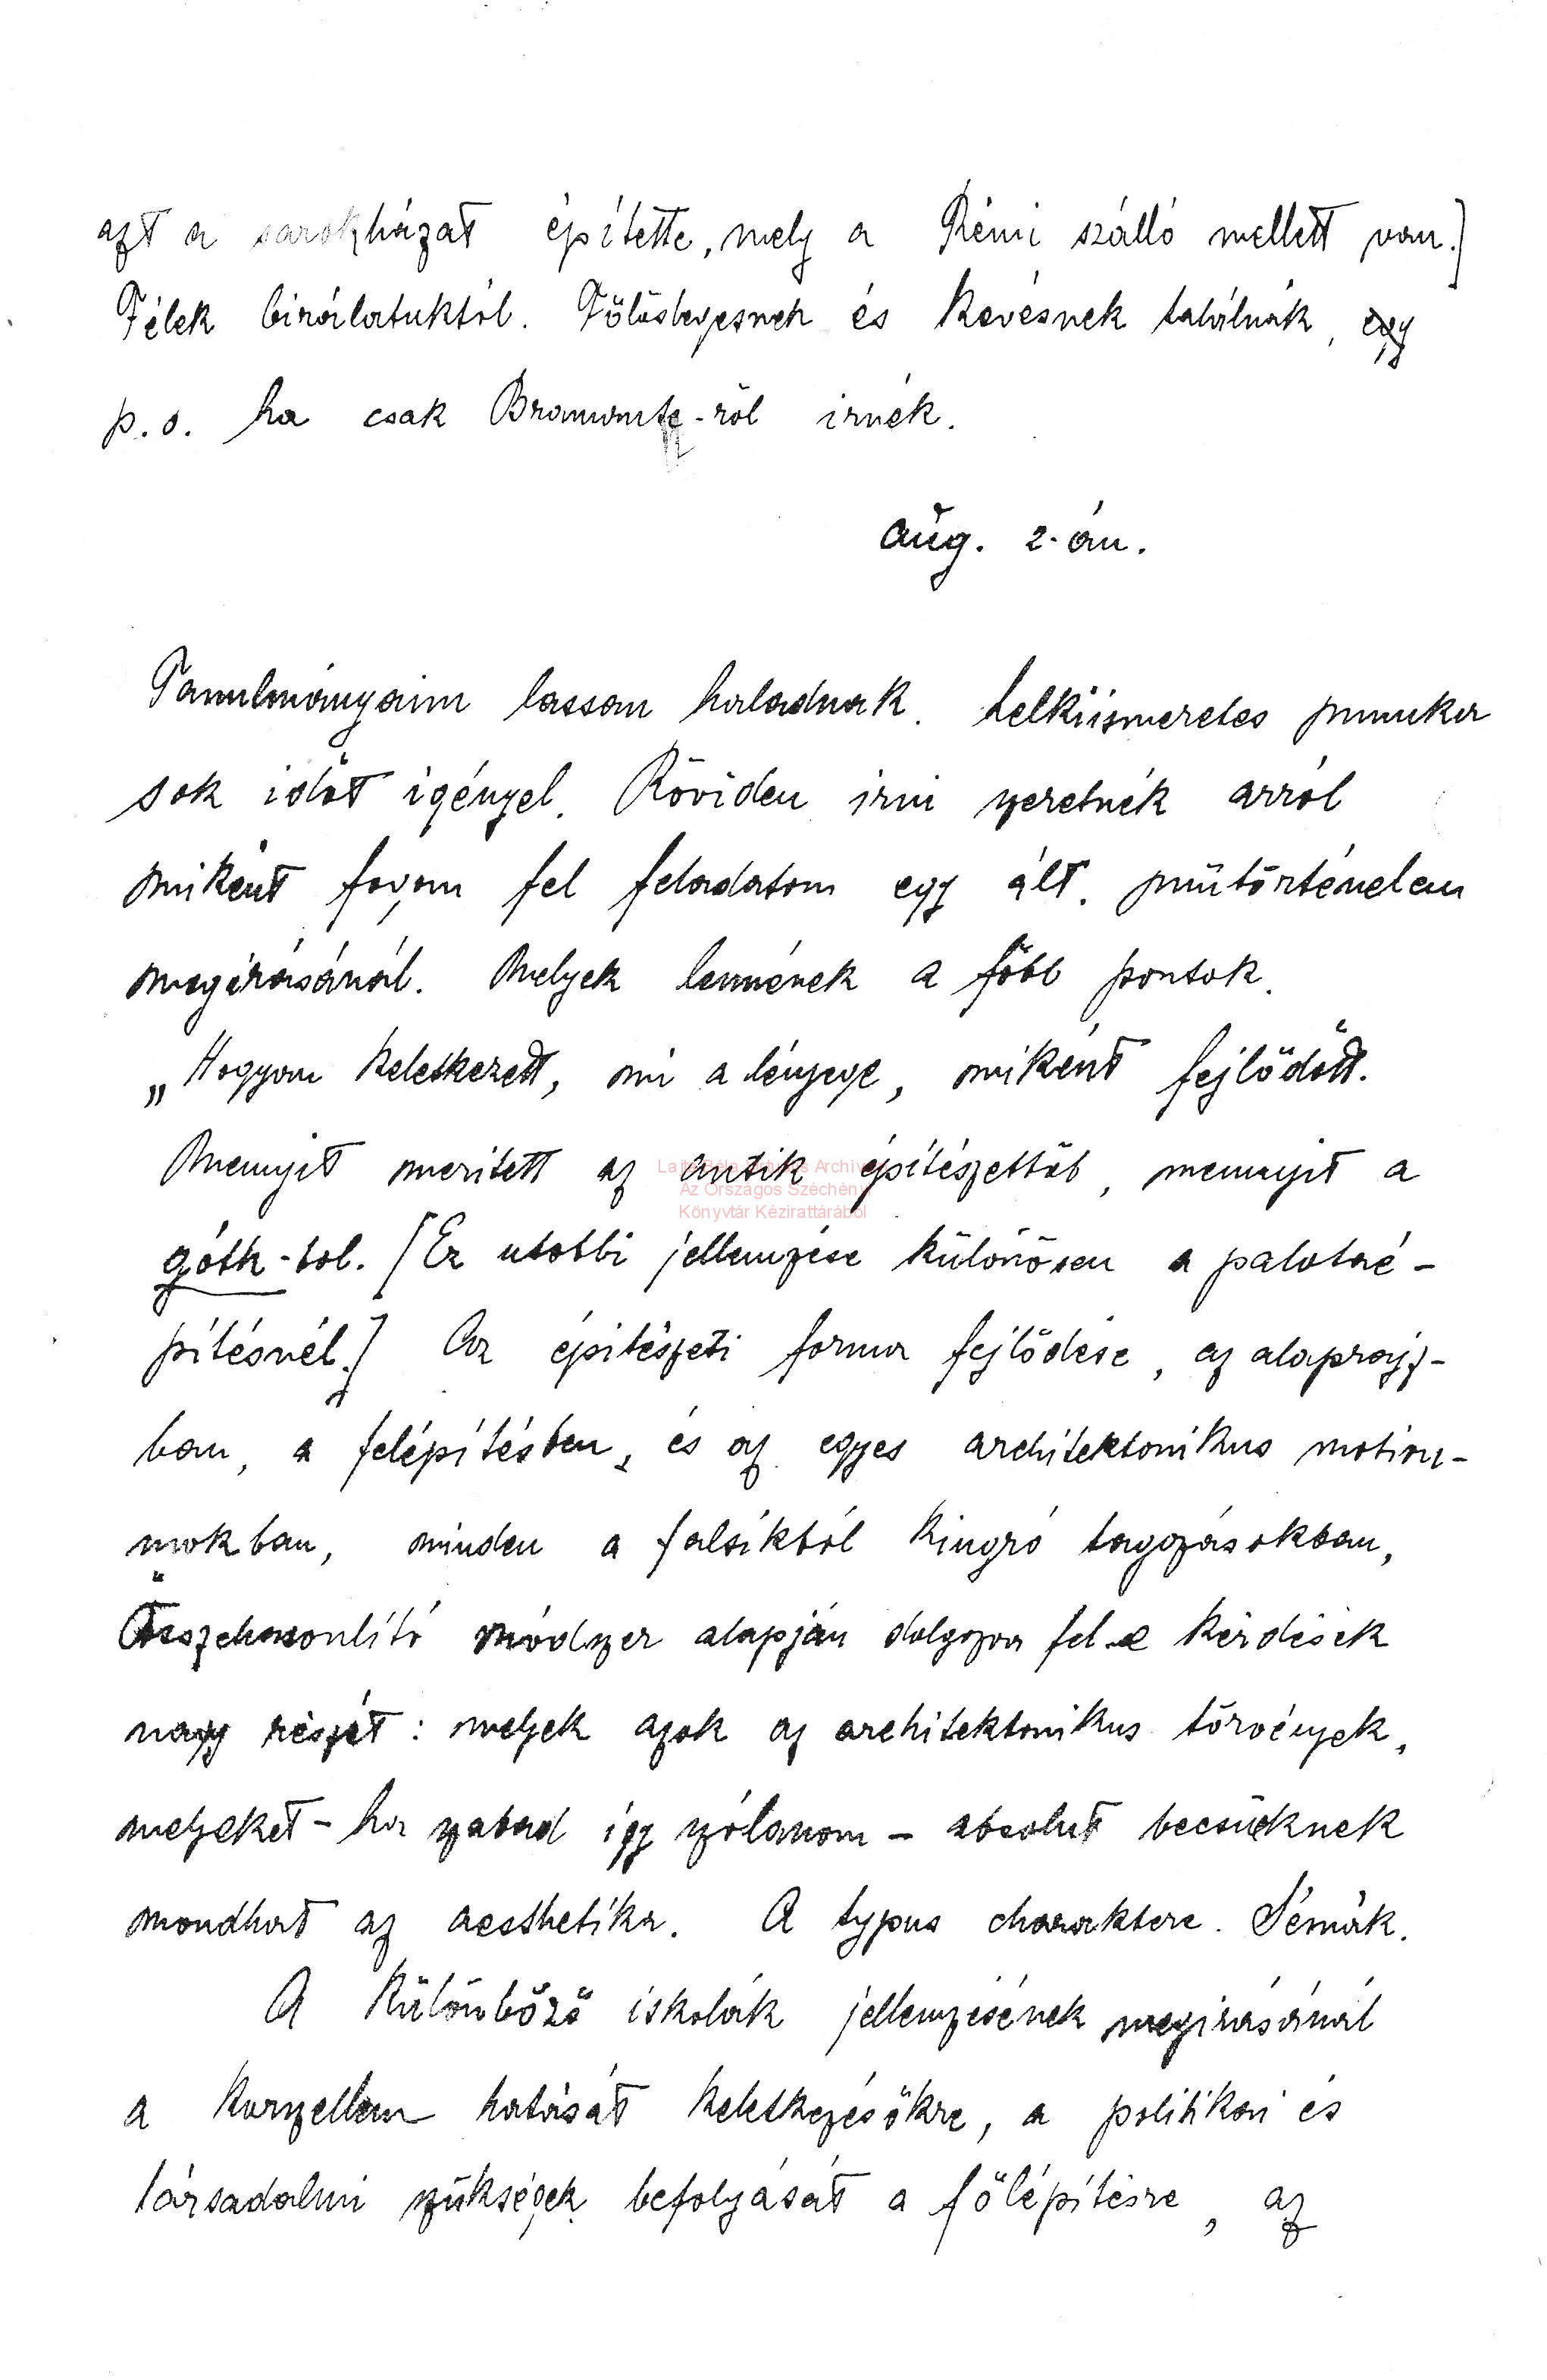 azt a sarokházat építette, mely a Rémi szálló mellett van.]
Félek birálatuktól. Fölöslegesnek és kevésnek találnák, egy
p.o. ha csak Bramante-ról irnék.
Aug. 2-án.
Tanulmányaim lassan haladnak. Lelkiismeretes munka
sok időt igényel. Röviden irni szeretnék arról
miként fogom fel feladatom egy ált. műtörténelem
megirásánál. Melyek lennének a főbb pontok.
„Hogyan keletkezett, mi a lényege, miként fejlődött.
Mennyit merített az antik építészettől, mennyit a
góth-tol. [Ez utobbi jellemzése különösen a palotaé-
pítésnél.] Az épitészeti forma fejlődése, az alaprajz-
ban, a felépítésben, és az egyes architektonikus motivu-
mokban, minden a falsíktól kiugró tagozásokban,
Összehasonlító módszer alapján dolgozva fel e kérdések
nagy részét: melyek azok az architektonikus törvények,
melyeket - ha szabad így szólanom - absolut becsüeknek
mondhat az aesthetika. A typus charaktere. Sémák.
A különböző iskolák jellemzésének megirásánál
a korszellem hatását keletkezésökre, a politikai és
társadalmi szükségek befolyását a fölépítésre, az
Lajta Béla Virtuális Archívum
Az Országos Széchényi
Könyvtár Kézirattárából